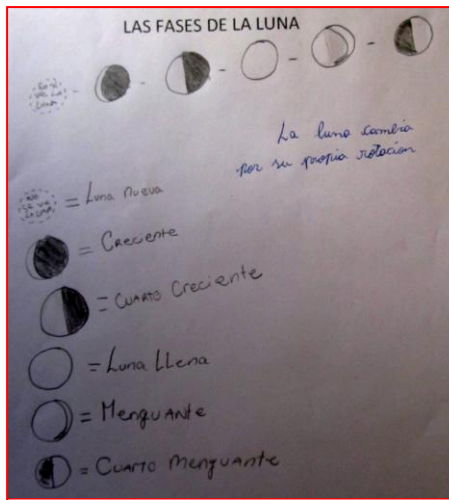 LAS FASES DE LA LUNA
NO SE
VE LA
LUNA
La luna cambia
por su propia rotacion
NO
SE VE
LA LUNA
= Luna nueva
= Creciente
= Cuarto Creciente
= Luna Llena
= Menguante
= Cuarto menguante